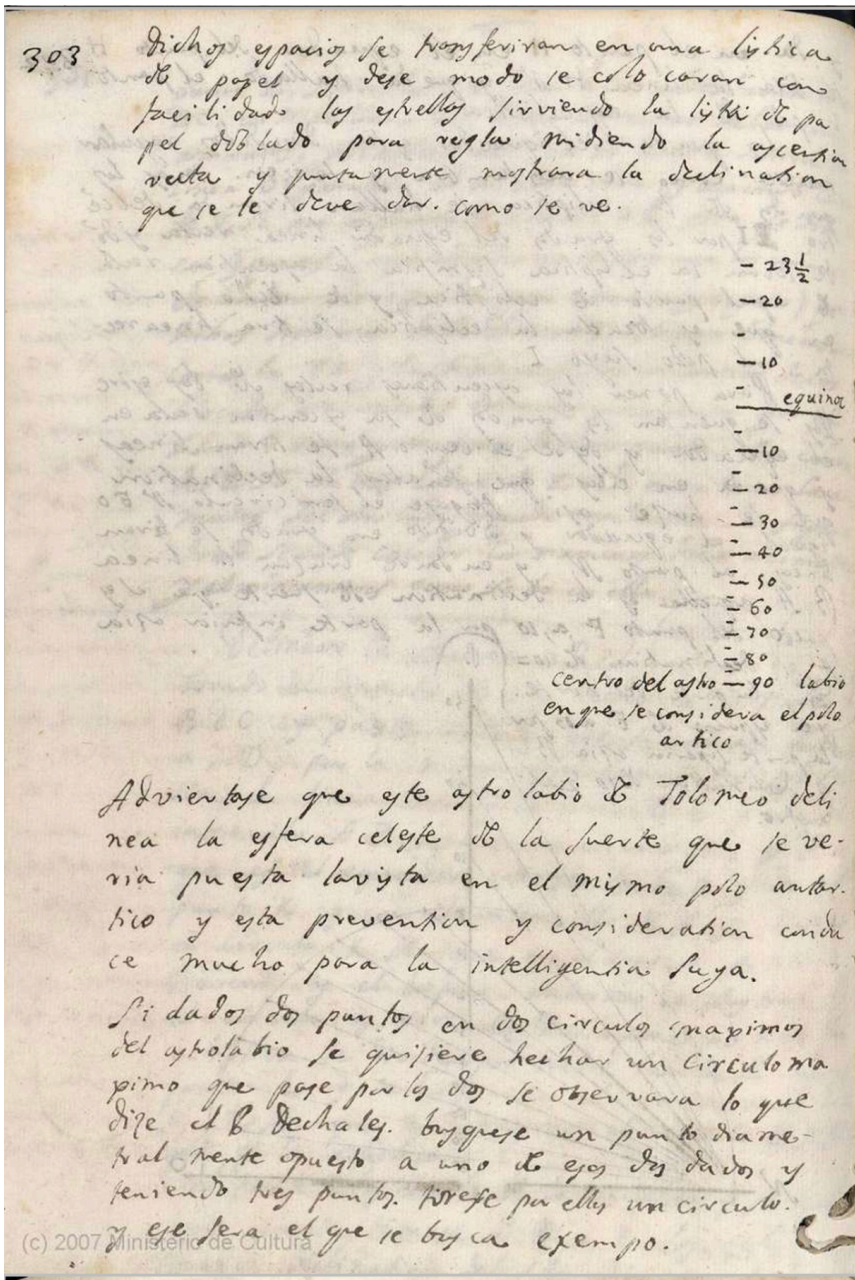 303
Dichos espacios se transferiran en una listica
de papel y dese modo se colocaran con
facilidad las estrellas sirviendo la lista de pa
pel doblado para regla midiendo la ascention
recta y juntamente mostrara la declination
que se le deve dar. como se ve.
23 1/2
20
10
equinoc
10
20
30
40
50
60
70
80
centro del astro — 90 labio
en que se considera el polo
artico
Adviertase que este astrolabio de Tolomeo deli
nea la esfera celeste de la suerte que se ve-
ria puesta la vista en el mismo polo antar-
tico y esta prevention y consideration condu
ce mucho para la intelligentia suya.
Si dados dos puntos en dos circulos maximos
del astrolabio se quisiere hechar un circulo ma
ximo que pase por los dos se observara lo que
dize el P Dechales. busquese un punto diame-
tralmente opuesto a uno de esos dos dados y
teniendo tres puntos. tirese por ellos un circulo.
y ese sera el que se busca exempo.
(c) 2007 Ministério de Cultura